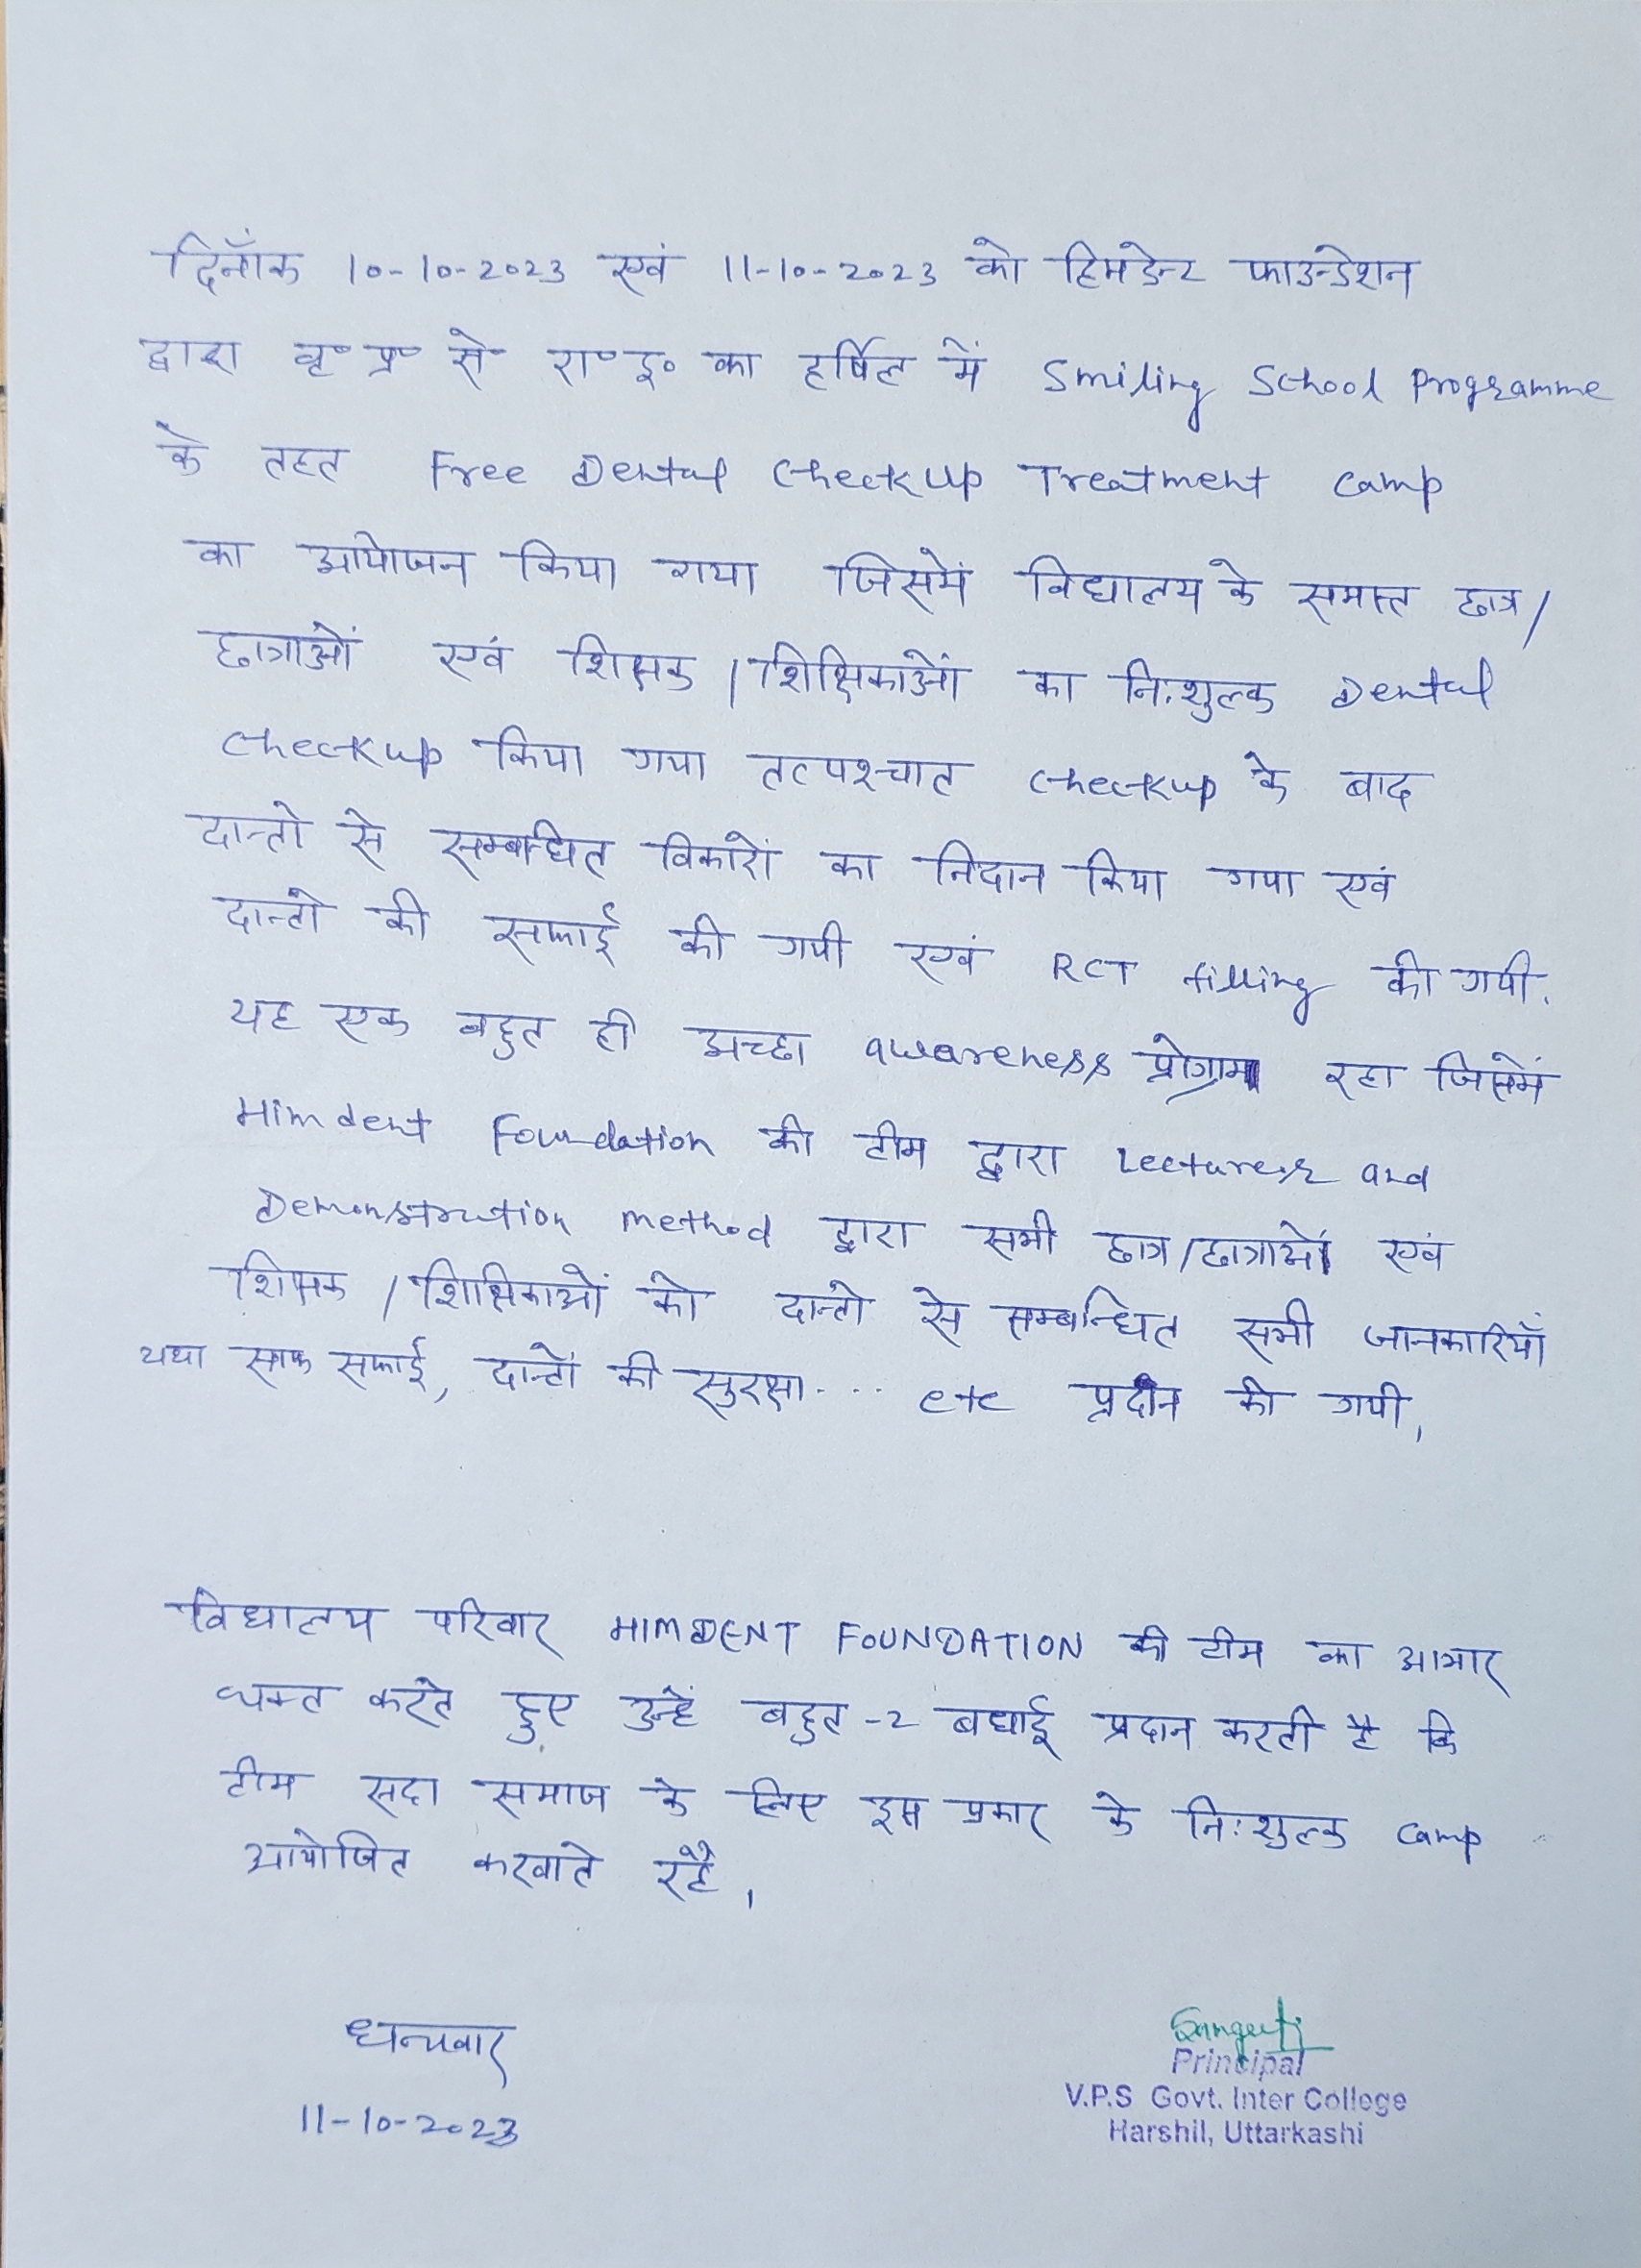 दिनाँक 10-10-2023 एवं 11-10-2023 को हिमडेन्ट फाउन्डेशन
द्वारा वृ॰ प्र॰ से॰ रा॰ इ॰ का हर्षिल में Smiling School Programme
के तहत Free Dental CheckUp Treatment Camp
का आयोजन किया गया जिसमें विद्यालय के समस्त छात्र/
छात्राओं एवं शिक्षक / शिक्षिकाओं का निःशुल्क Dental
Checkup किया गया तत्पश्चात checkup के बाद
दान्तो से सम्बन्धित विकारों का निदान किया गया एवं
दान्तो की सफाई की गयी एवं RCT filling की गयी.
यह एक बहुत ही अच्छा awareness प्रोग्राम रहा जिसमें
Himdent Foundation की टीम द्वारा and
Demonstration method द्वारा सभी छात्र/छात्राओं एवं
शिक्षक / शिक्षिकाओं को दान्तो से सम्बन्धित सभी जानकारियाँ
यथा साफ सफाई, दान्तों की सुरक्षा.... etc प्रदान की गयी,
विद्यालय परिवार HIMDENT FOUNDATION की टीम का आभार
व्यक्त करते हुए उन्हें बहुत-2 बधाई प्रदान करती है कि
टीम सदा समाज के लिए इस प्रकार के निःशुल्क camp
आयोजित करवाते रहै,
धन्यवाद
11-10-2023
Sangeeta
Principal
V.P.S Govt. Inter College
Harshil, Uttarkashi